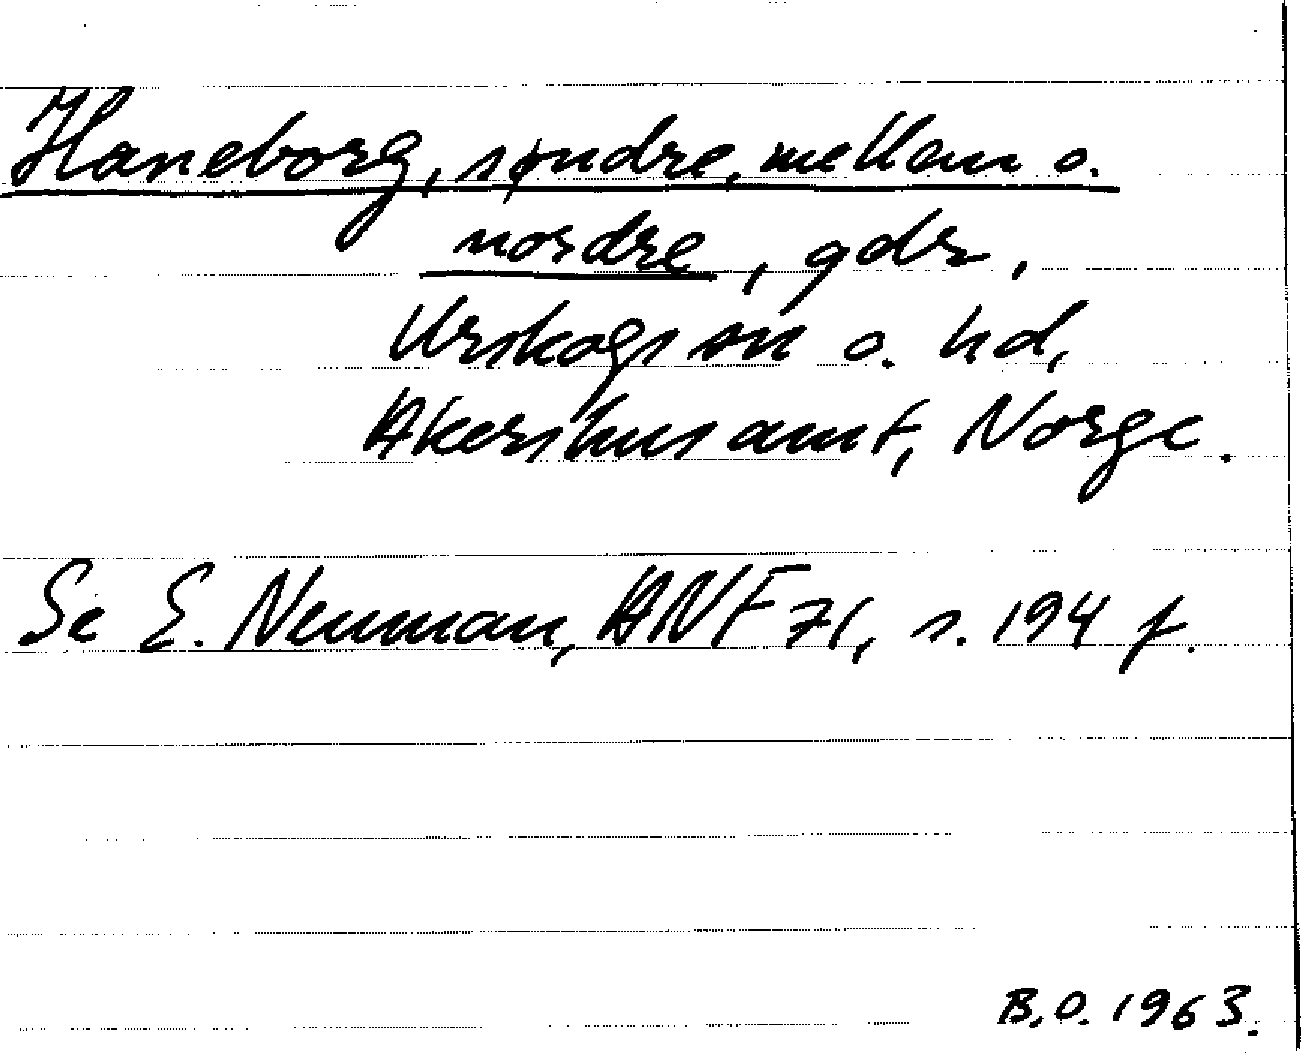 Haneborg, søndre, mellan o.
nordre, gdr,
Urskogs sn o. hd,
Akershus amt, Norge.
Se E. Neuman, ANF 71, s. 194 f.
B.O. 1963.